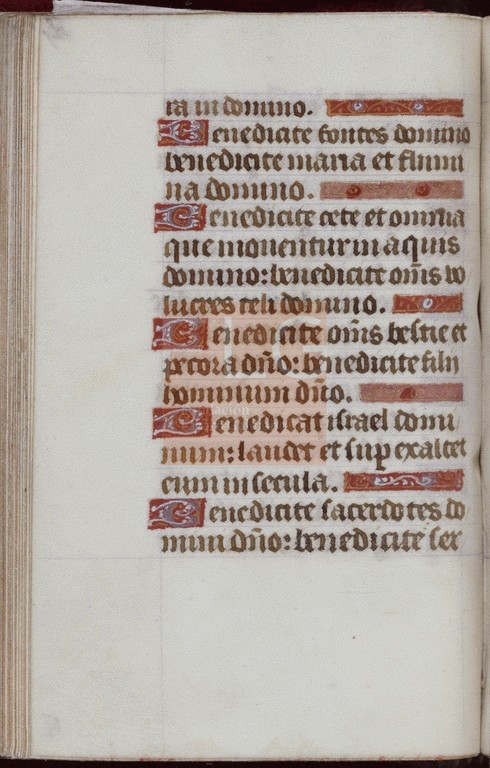 ra in domino.
Benedicite fontes domino
benedicite maria et flumi
na domino.
Benedicite cete et omnia
que mouentur in aquis
domino: benedicite om̅s vo
lucres celi domino.
Benedicite om̅s bestie et
pecora dn̅o: benedicite filij
hominum dn̅o.
Benedicat israel domi
num: laudet et sup exaltet
eum in secula.
Benedicite sacerdotes do
mini dn̅o: benedicite ser